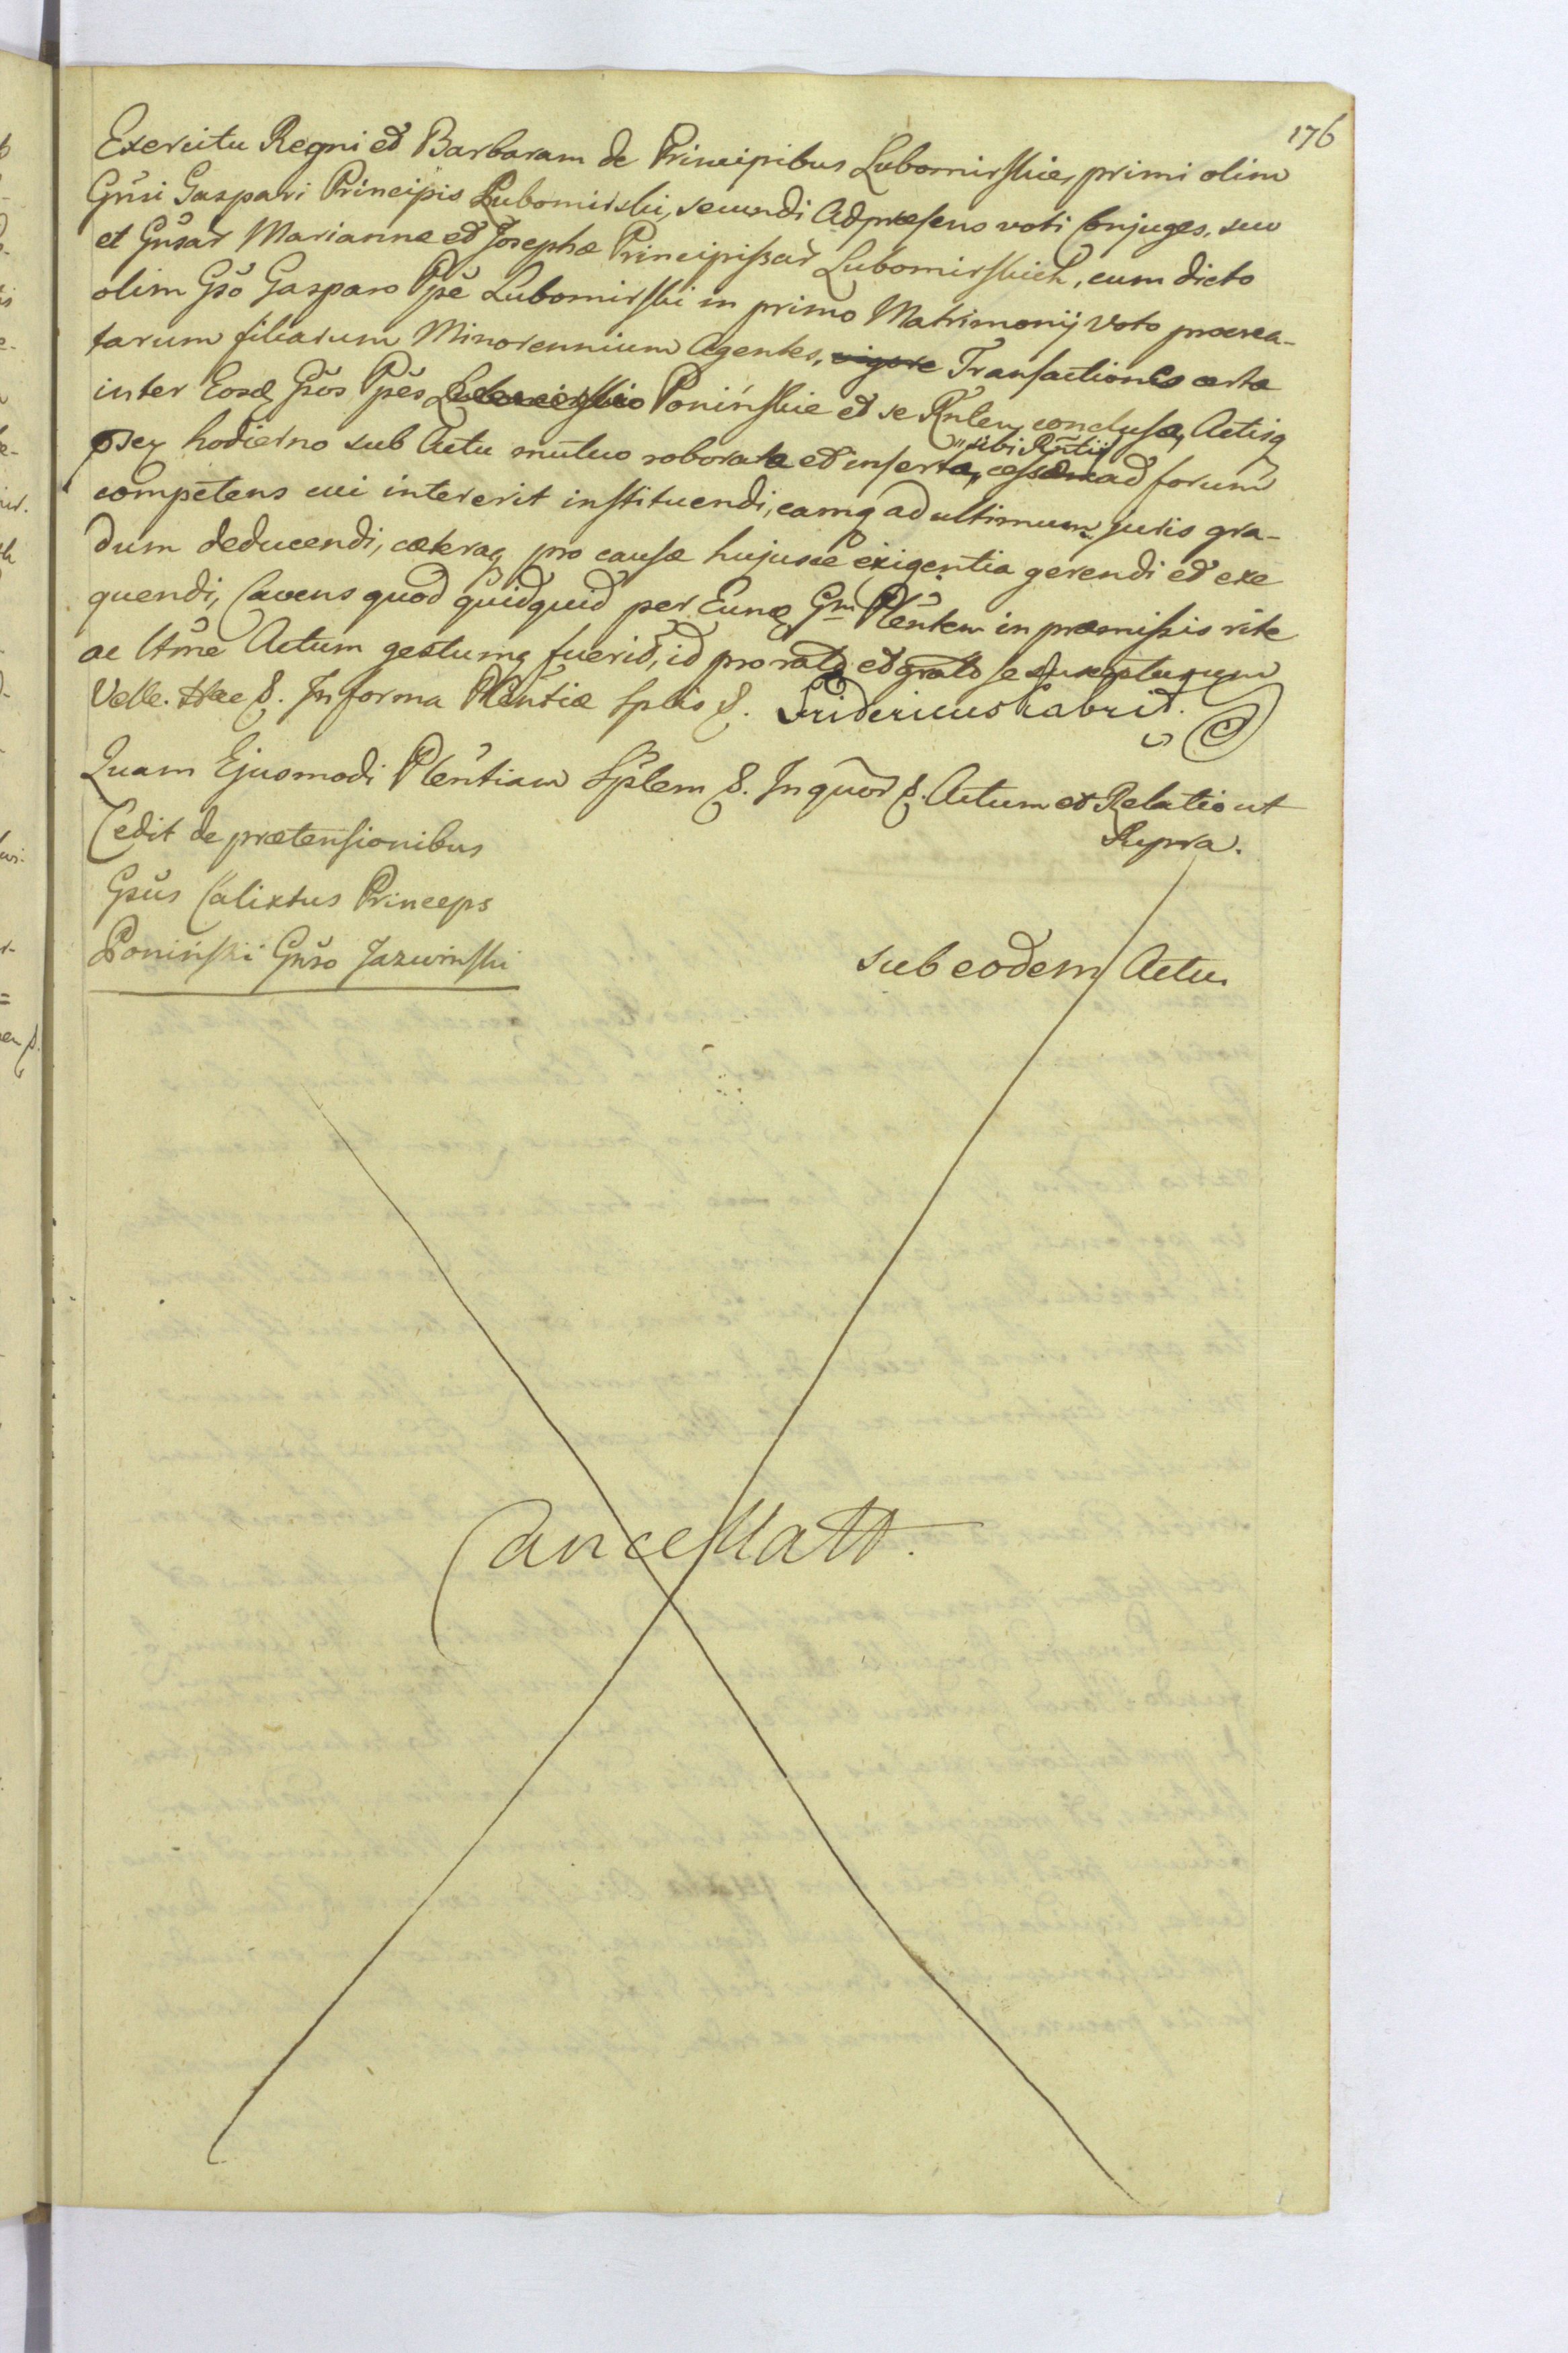 176
Exercitu Regni et Barbaram de Principibus Lubomirskie, primi olim
Gnsi Gaspari Principis Lubomirski, secundi Adpræsens voti Conjuges, suo
et Gnsar Mariannæ et Josephæ Principissar Lubomirskich, cum dicto
olim Gsõ Gasparo Ppẽ Lubomirski in primo Matrimonij Voto procrea-
tarum filiarum Minorennium Agentes, vigore Transactiones certæ
inter Eosq Gsos Ppẽs Lubomirskie Poninskie et se Rntem conclusæ, Actisq
psq hodierno sub Actu mutuo roboratæ et insertæ, "sibi Rntij ad forum
competens cui intererit instituendi, eamq ad ultimum juris gra-
dum deducendi, cæteraq pro causæ hujusce exigentia gerendi et exe
quendi, Cavens quod quidquid per Eunq Gm Plentem in præmissis rite
ac lttme Actum gestumq fuerit, id pro rato et grato se suscepturum
Velle. Hac &. In forma Plentiæ Splis &. Fridericus Cabrit.
Quam Ejusmodi Plentiam Splem &. In quor &. Actum et Relatio ut
Supra.
Cedit de prætensionibus
Gsus Calixtus Princeps
Poniński Gnso Jazwinski
sub eodem Actu
Cancellatt.